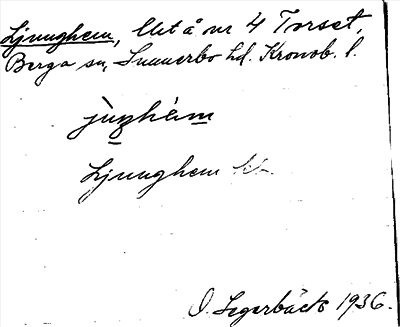 Ljunghem, Utå nr 4 Torset,
Berga sn, Sunnerbo hd. Kronob. l.
jùŋhèm
Ljunghem
O. Segerbäck 1936.